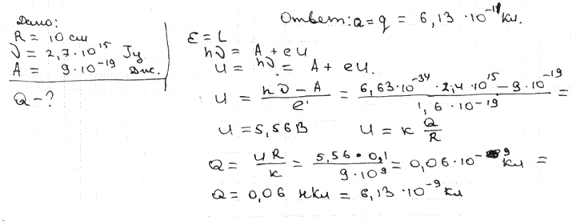 Дано:
R = 10 см
ν = 2,7·10¹⁵ Гц
A = 9·10⁻¹⁹ Дж.
Q - ?
Ответ: Q = q = 6,13·10⁻¹¹ Кл.
ε = L
hν = A + eU
U = hν = A + eU.
U = (hν - A)/e = (6,63·10⁻³⁴·2,4·10¹⁵ - 9·10⁻¹⁹)/(1,6·10⁻¹⁹) =
U = 5,56 В   U = к Q/R
Q = UR/к = (5,56·0,1)/(9·10⁹) = 0,06·10⁻⁹ Кл =
Q = 0,06 нКл = 6,13·10⁻⁹ Кл